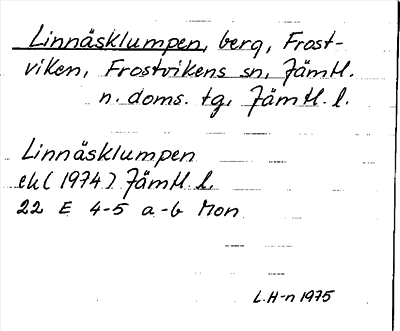 Linnäsklumpen, berg, Frost-
viken, Frostvikens sn, Jämtl.
n. doms. tg, Jämtl. l.
Linnäsklumpen
ek (1974) Jämtl. l.
22 E 4-5 a-b Mon
L.H-n 1975